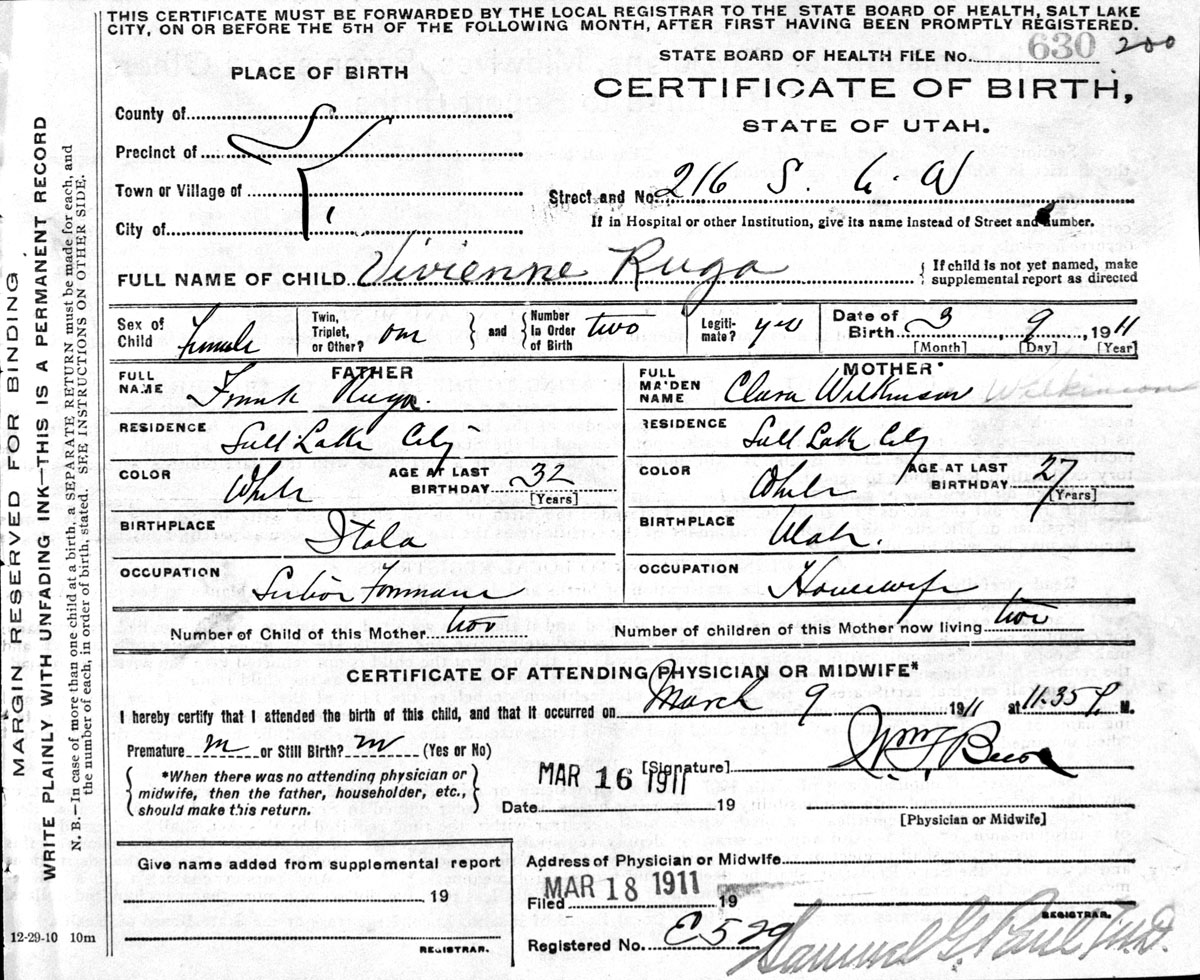 THIS CERTIFICATE MUST BE FORWARDED BY THE LOCAL REGISTRAR TO THE STATE BOARD OF HEALTH, SALT LAKE
CITY, ON OR BEFORE THE 5TH OF THE FOLLOWING MONTH, AFTER FIRST HAVING BEEN PROMPTLY REGISTERED.
STATE BOARD OF HEALTH FILE No. 630 200
PLACE OF BIRTH
CERTIFICATE OF BIRTH,
STATE OF UTAH.
County of
Precinct of
Town or Village of
City of
Street and No. 216 S.
If in Hospital or other Institution, give its name instead of Street and Number.
FULL NAME OF CHILD Vivienne Ruga
If child is not yet named, make
supplemental report as directed
Sex of Child Female
Twin, Triplet, or Other? one and Number In Order of Birth two
Legitimate? yes
Date of Birth 3 9 1911
[Month] [Day] [Year]
FATHER
FULL NAME Frank Ruga.
RESIDENCE Salt Lake City
COLOR White AGE AT LAST BIRTHDAY 32 [Years]
BIRTHPLACE Itala
OCCUPATION
MOTHER
FULL MAIDEN NAME Clara Wilkinson Wilkinson
RESIDENCE Salt Lake City
COLOR White AGE AT LAST BIRTHDAY 27 [Years]
BIRTHPLACE Utah.
OCCUPATION Housewife
Number of Child of this Mother two
Number of children of this Mother now living two
CERTIFICATE OF ATTENDING PHYSICIAN OR MIDWIFE*
I hereby certify that I attended the birth of this child, and that it occurred on March 9 1911 at 11.35 P. M.
Premature no or Still Birth? no (Yes or No)
*When there was no attending physician or
midwife, then the father, householder, etc.,
should make this return.
[Signature]
MAR 16 1911
Date 19
[Physician or Midwife]
Give name added from supplemental report
19
REGISTRAR.
Address of Physician or Midwife
MAR 18 1911
Filed 19
REGISTRAR.
Registered No. E529
Samuel G. Paul M.D.
12-29-10 10m
MARGIN RESERVED FOR BINDING
WRITE PLAINLY WITH UNFADING INK—THIS IS A PERMANENT RECORD
N. B.—In case of more than one child at a birth, a SEPARATE RETURN must be made for each, and
the number of each, in order of birth, stated. SEE INSTRUCTIONS ON OTHER SIDE.